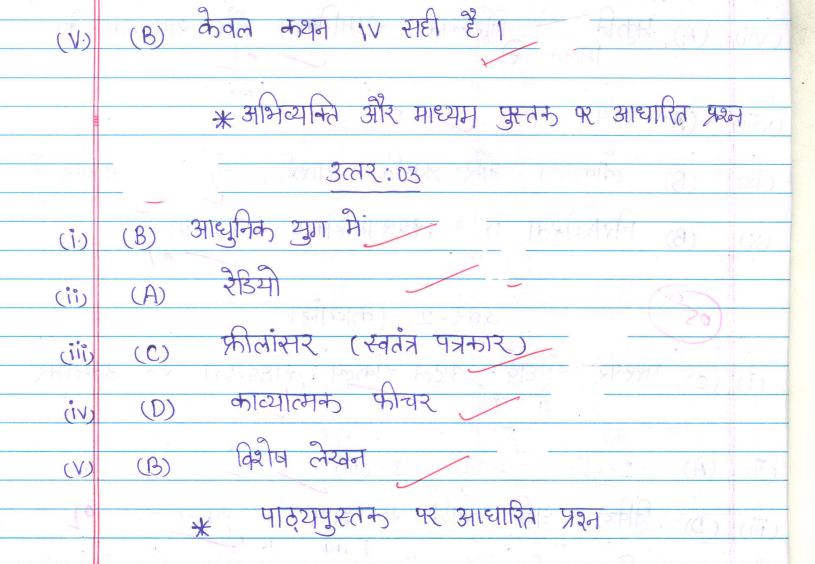 (v.) (B) केवल कथन IV सही है।
* अभिव्यक्ति और माध्यम पुस्तक पर आधारित प्रश्न
उत्तर:03
(i.) (B) आधुनिक युग में
(ii) (A) रेडियो
(iii) (C) फ्रीलांसर (स्वतंत्र पत्रकार)
(iv) (D) काव्यात्मक फीचर
(v) (B) विशेष लेखन
* पाठ्यपुस्तक पर आधारित प्रश्न